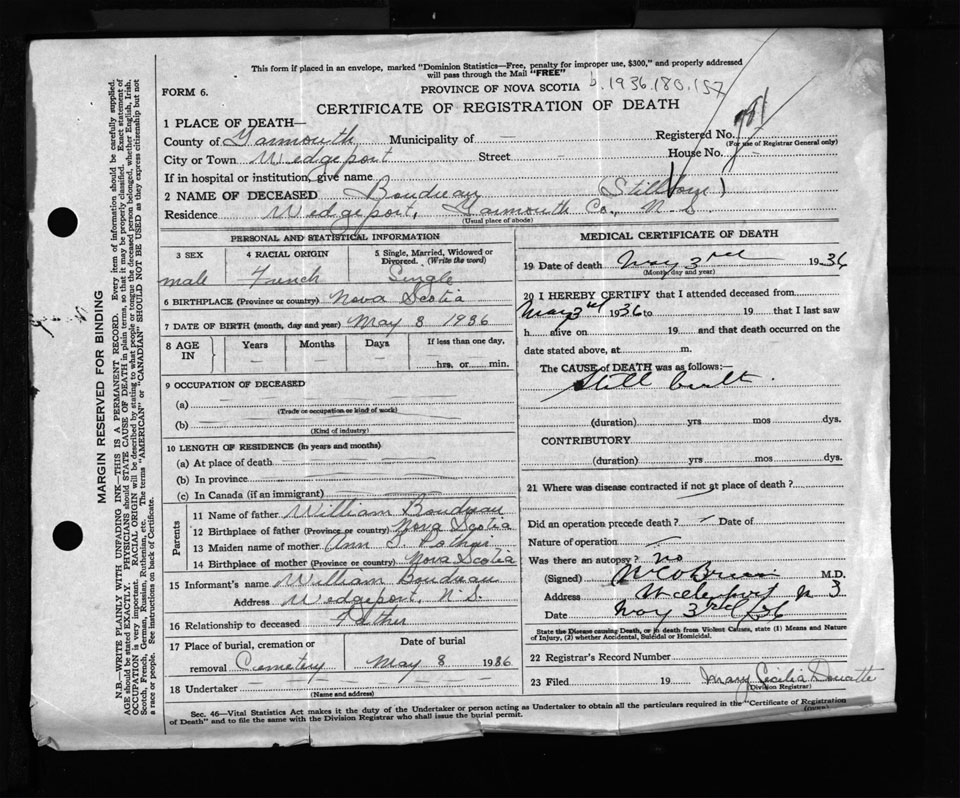 This form if placed in an envelope, marked "Dominion Statistics—Free, penalty for improper use, $300," and properly addressed
will pass through the Mail "FREE"
PROVINCE OF NOVA SCOTIA
b. 1936.180.157
FORM 6.
CERTIFICATE OF REGISTRATION OF DEATH
1 PLACE OF DEATH—
County of Yarmouth Municipality of — Registered No.
(For use of Registrar General only)
City or Town Wedgeport Street House No. -
If in hospital or institution, give name
2 NAME OF DECEASED Boudreau (Stillborn)
Residence Wedgeport, Yarmouth Co., N. S.
(Usual place of abode)
PERSONAL AND STATISTICAL INFORMATION
3 SEX 4 RACIAL ORIGIN 5 Single, Married, Widowed or
Divorced. (Write the word)
male French Single
6 BIRTHPLACE (Province or country) Nova Scotia
7 DATE OF BIRTH (month, day and year) May 3 1936
8 AGE IN Years Months Days If less than one day,
— — — hrs. or min.
9 OCCUPATION OF DECEASED
(a)
(Trade or occupation or kind of work)
(b)
(Kind of industry)
10 LENGTH OF RESIDENCE (in years and months)
(a) At place of death
(b) In province
(c) In Canada (if an immigrant)
Parents
11 Name of father William Boudreau
12 Birthplace of father (Province or country) Nova Scotia
13 Maiden name of mother Ann S. Pothier
14 Birthplace of mother (Province or country) Nova Scotia
15 Informant's name William Boudreau
Address Wedgeport, N.S.
16 Relationship to deceased Father
17 Place of burial, cremation or Date of burial
removal Cemetery May 3 1936
18 Undertaker
(Name and address)
MEDICAL CERTIFICATE OF DEATH
19 Date of death May 3rd 1936
(Month, day and year)
20 I HEREBY CERTIFY that I attended deceased from
May 3rd 1936 to 19 that I last saw
h alive on 19 and that death occurred on the
date stated above, at m.
The CAUSE of DEATH was as follows:—
Still birth.
(duration) yrs mos dys.
CONTRIBUTORY
(duration) yrs mos dys.
21 Where was disease contracted if not at place of death?
Did an operation precede death? — Date of
Nature of operation —
Was there an autopsy? no
(Signed) O'Brien M.D.
Address Wedgeport N S
Date May 3rd /36
State the Disease causing Death, or in death from Violent Causes, state (1) Means and Nature
of Injury, (2) whether Accidental, Suicidal or Homicidal.
22 Registrar's Record Number
23 Filed 19 Mary Cecilia Doucette
(Division Registrar)
Sec. 46—Vital Statistics Act makes it the duty of the Undertaker or person acting as Undertaker to obtain all the particulars required in the "Certificate of Registration
of Death" and to file the same with the Division Registrar who shall issue the burial permit.
MARGIN RESERVED FOR BINDING
N.B.—WRITE PLAINLY WITH UNFADING INK—THIS IS A PERMANENT RECORD. Every item of information should be carefully supplied.
AGE should be stated EXACTLY. PHYSICIANS should STATE CAUSE OF DEATH in plain terms, so that it may be properly classified. Exact statement of
OCCUPATION is very important. RACIAL ORIGIN will be described by stating to what people or tongue the deceased person belonged, whether English, Irish,
Scotch, French, German, Russian, Ruthenian, etc. The terms "AMERICAN" or "CANADIAN" SHOULD NOT BE USED as they express citizenship but not
a race or people. See instructions on back of Certificate.